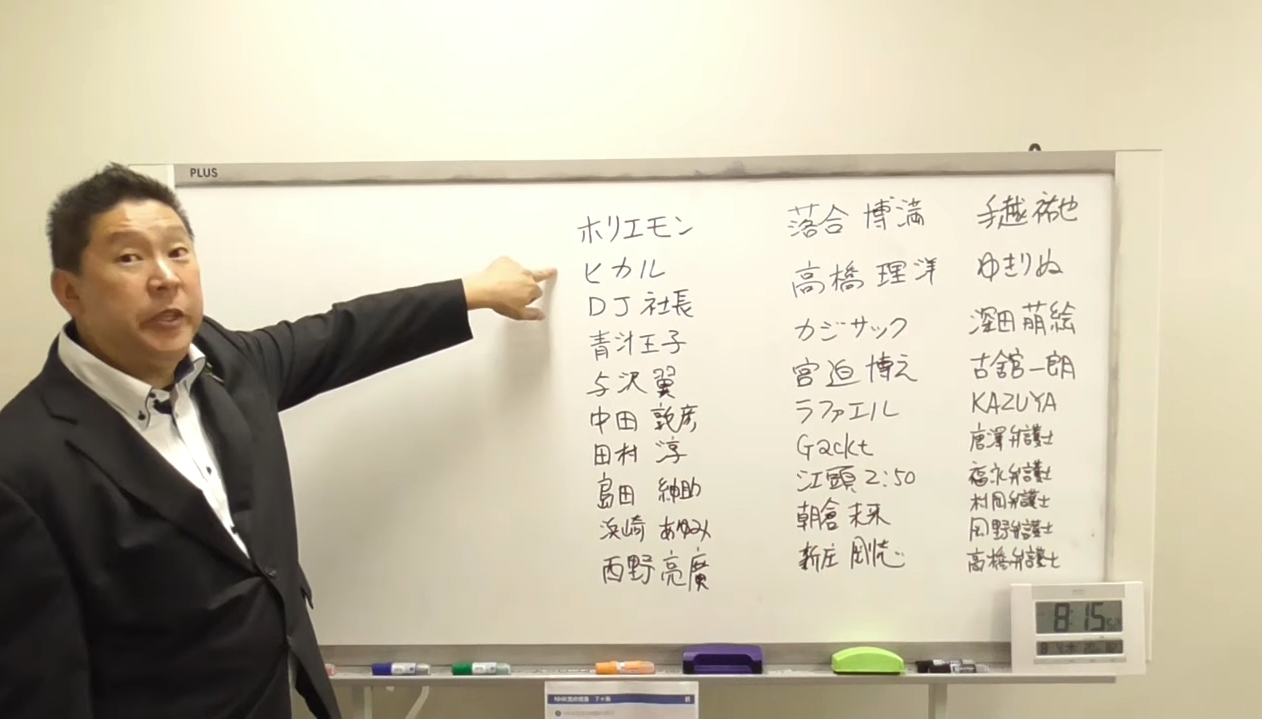 PLUS
ホリエモン
ヒカル
DJ社長
青汁王子
与沢 翼
中田 敦彦
田村 淳
島田 紳助
浜崎 あゆみ
西野 亮廣
落合 博満
高橋 理洋
カジサック
宮迫 博之
ラファエル
Gackt
江頭 2:50
朝倉 未来
新庄 剛志
手越 祐也
ゆきりぬ
深田 萌絵
古舘 一朗
KAZUYA
唐澤弁護士
福永弁護士
村岡弁護士
岡野弁護士
高橋弁護士
8:15